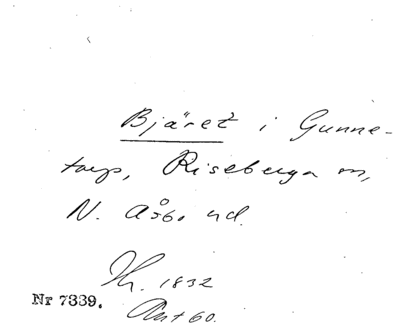 Bjäret i Gunne-
torp, Riseberga sn,
N. Åsbo hd.
Th. 1832
Nr 7339.